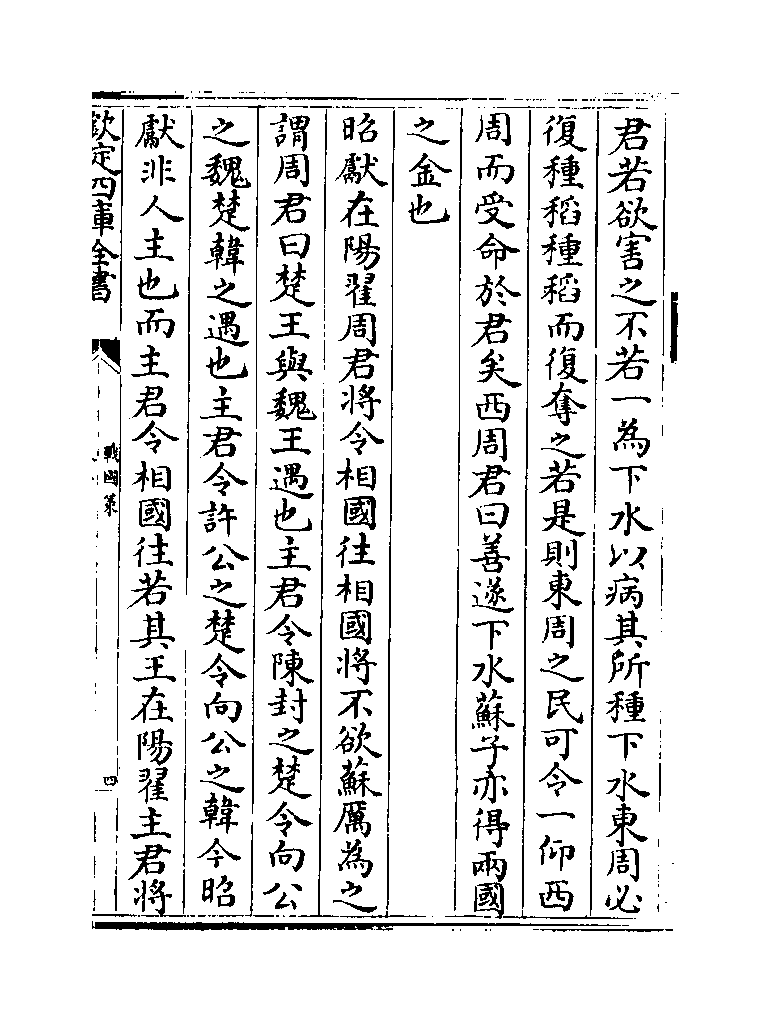 君若欲害之不若一為下水以病其所種下水東周必
復種稻種稻而復奪之若是則東周之民可令一仰西
周而受命於君矣西周君曰善遂下水蘇子亦得兩國
之金也
昭獻在陽翟周君將令相國往相國將不欲蘇厲為之
謂周君曰楚王與魏王遇也主君令陳封之楚令向公
之魏楚韓之遇也主君令許公之楚令向公之韓今昭
獻非人主也而主君令相國往若其王在陽翟主君將
欽定四庫全書
戰國策
四